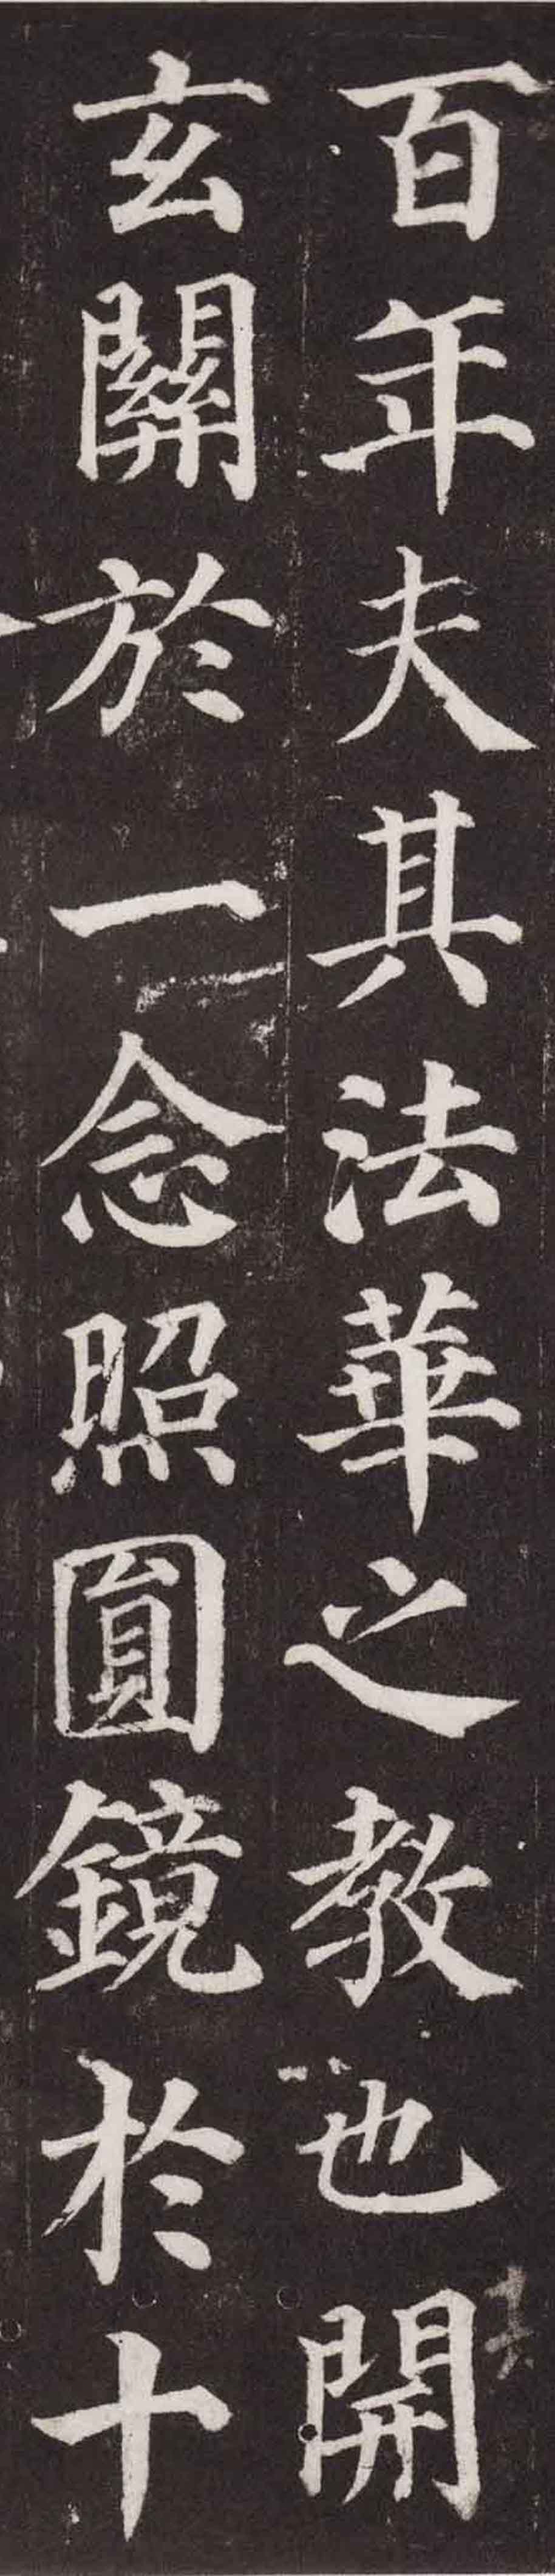 百年夫其法華之教也開
玄關於一念照圓鏡於十